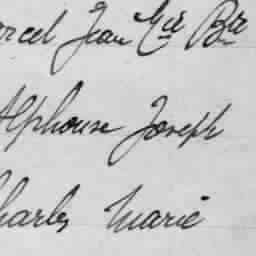 rcel Jean Mie Bte
Alphonse Joseph
harles Marie